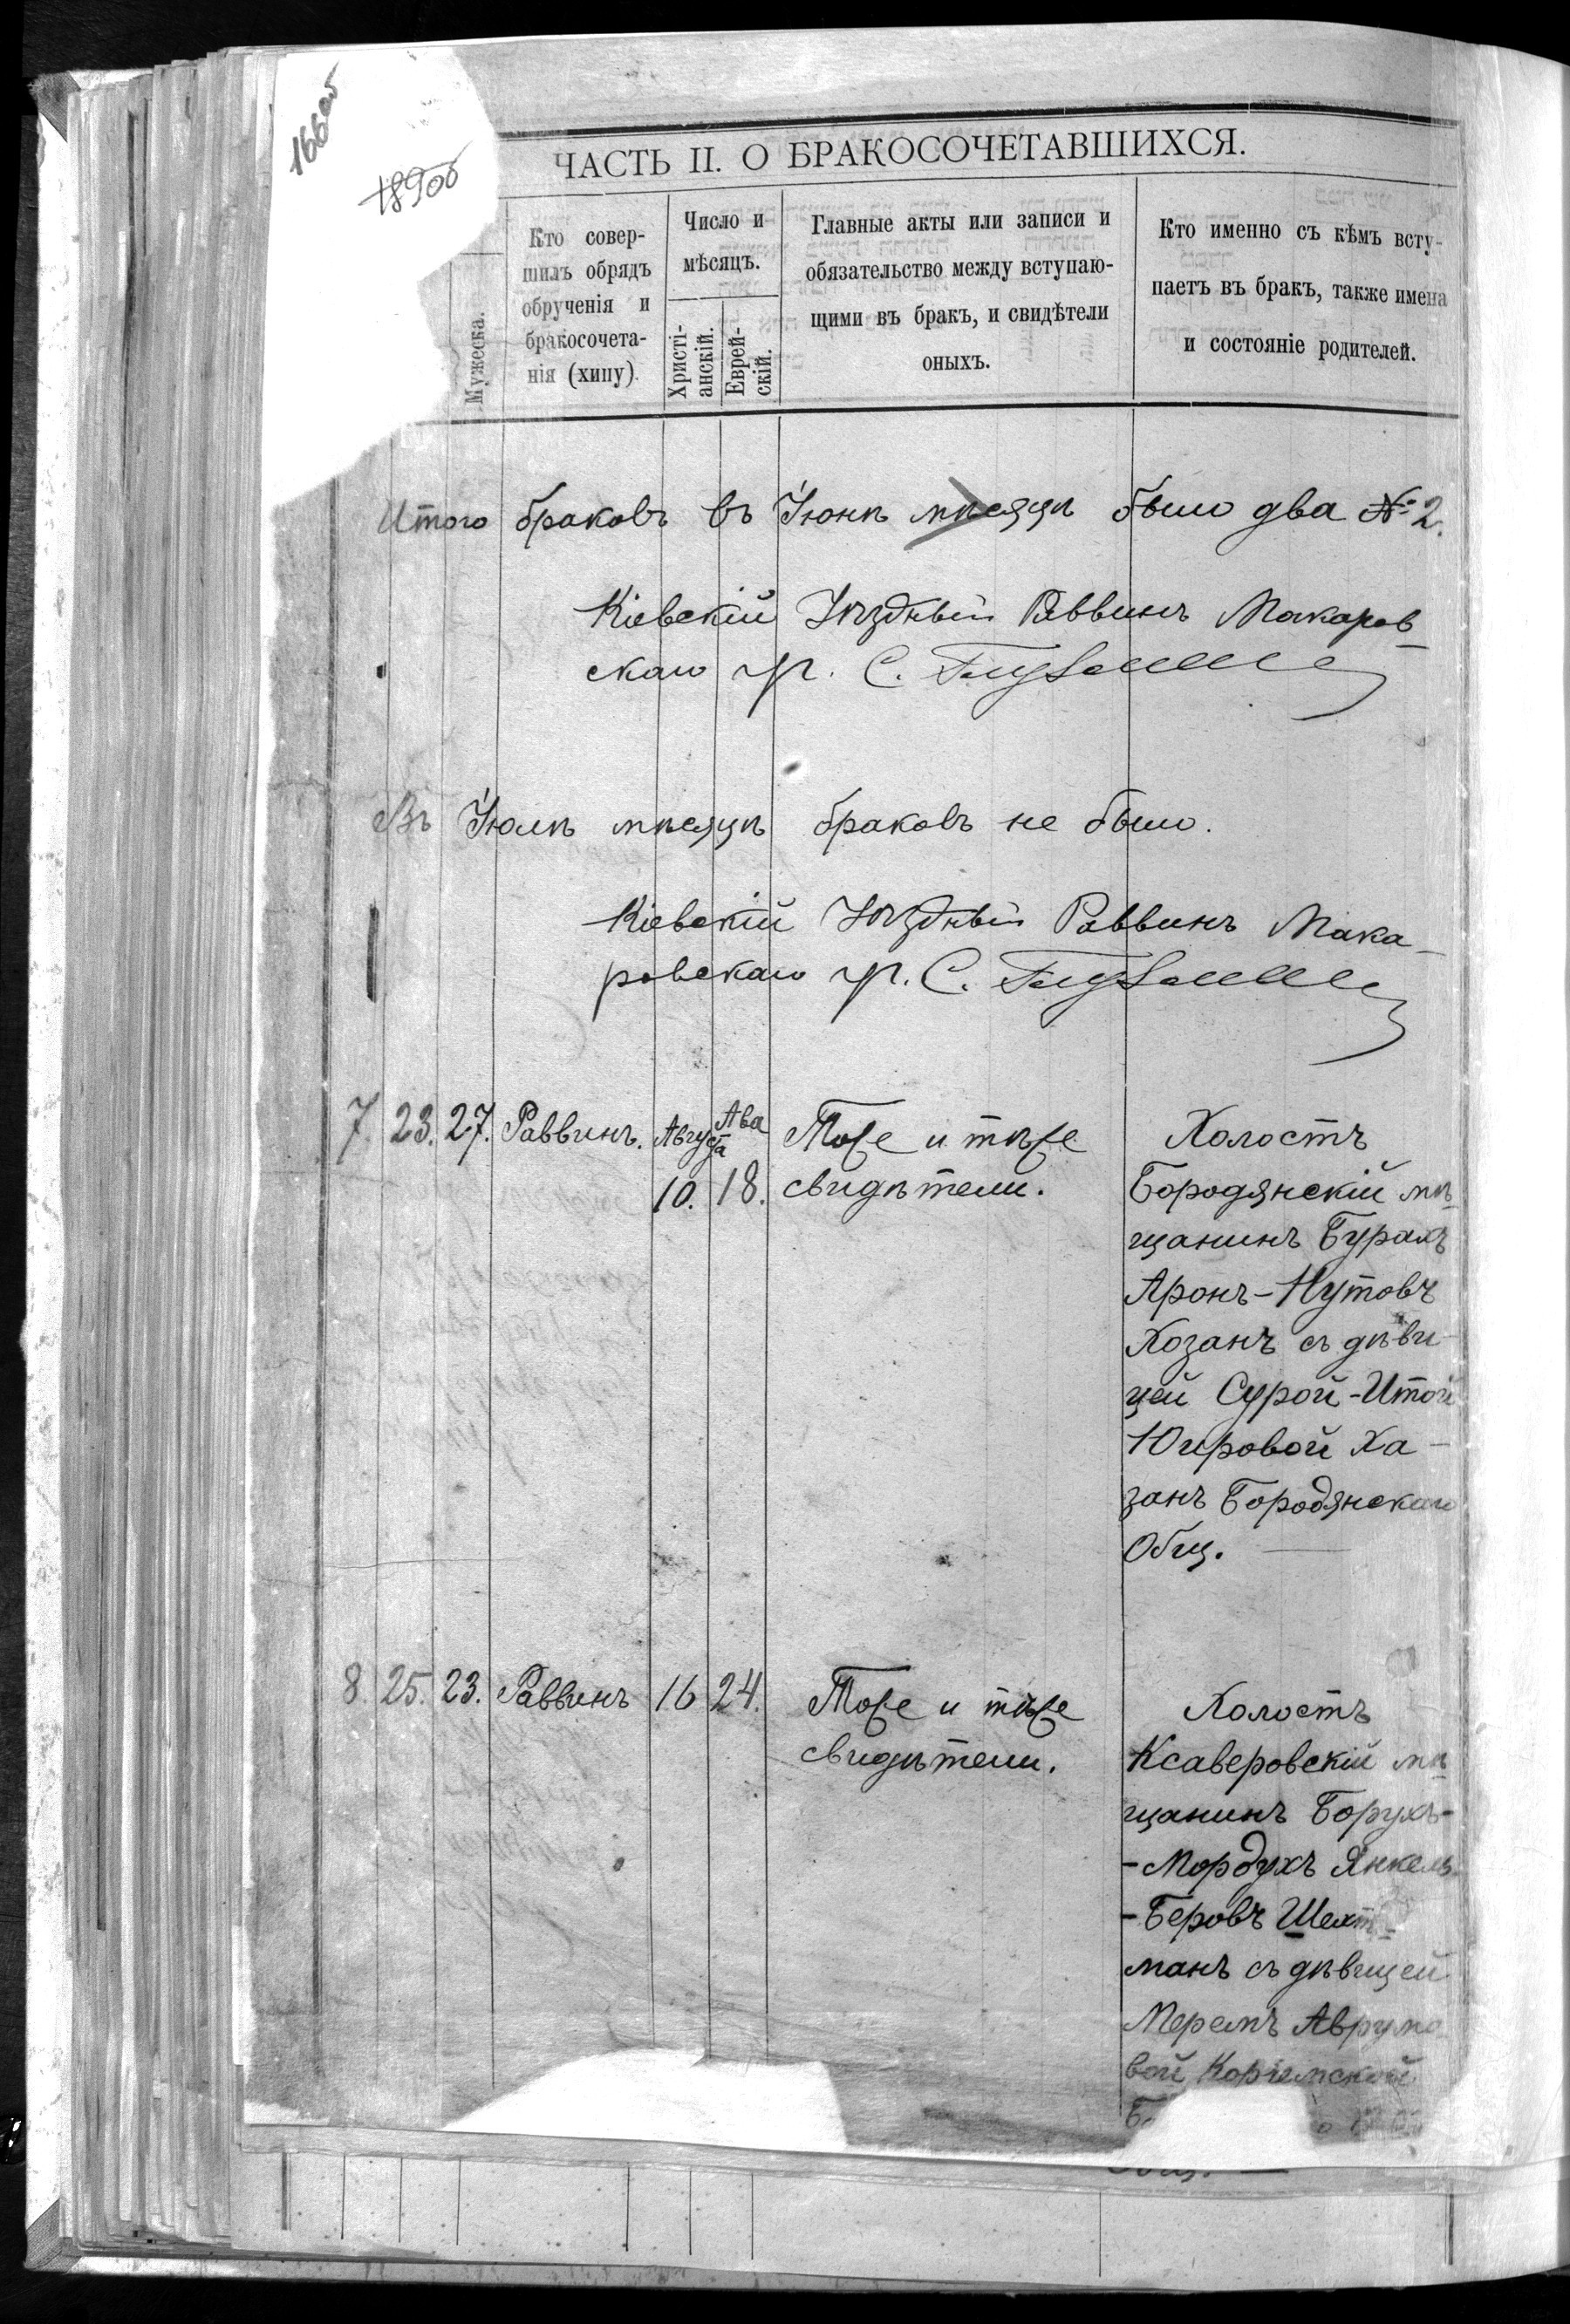 166об
189об
ЧАСТЬ II. О БРАКОСОЧЕТАВШИХСЯ.
Мужеска.
Кто совер-
шилъ обрядъ
обрученія и
бракосочета-
нія (хипу).
Число и
мѣсяцъ.
Христі-
анскій.
Еврей-
скій.
Главные акты или записи и
обязательство между вступаю-
щими въ бракъ, и свидѣтели
оныхъ.
Кто именно съ кѣмъ всту-
паетъ въ бракъ, также имена
и состояніе родителей.
Итого браковъ въ Іюнѣ мѣсяцѣ было два № 2.
Кіевскій Уѣздный Раввинъ Макаров-
скаго уч. С.
Въ Іюлѣ мѣсяцѣ браковъ не было.
Кіевскій Уѣздный Раввинъ Мака-
ровскаго уч. С.
7. 23. 27. Раввинъ. Августа 10. Ава 18.
Тоже и тѣже
свидѣтели.
Холостъ
Бородянскій мѣ-
щанинъ Бурахъ
Аронъ-Нутовъ
Хозанъ съ дѣви-
цей Сурой-Итой
Юировой Ха-
занъ Бородянскаго
Общ.
8. 25. 23. Раввинъ 16 24.
Тоже и тѣже
свидѣтели.
Холостъ
Ксаверовскій мѣ-
щанинъ Борухъ-
-Мордухъ Янкель-
-Беровъ Шехт-
манъ съ дѣвицей
Меремъ Аврумо-
вой